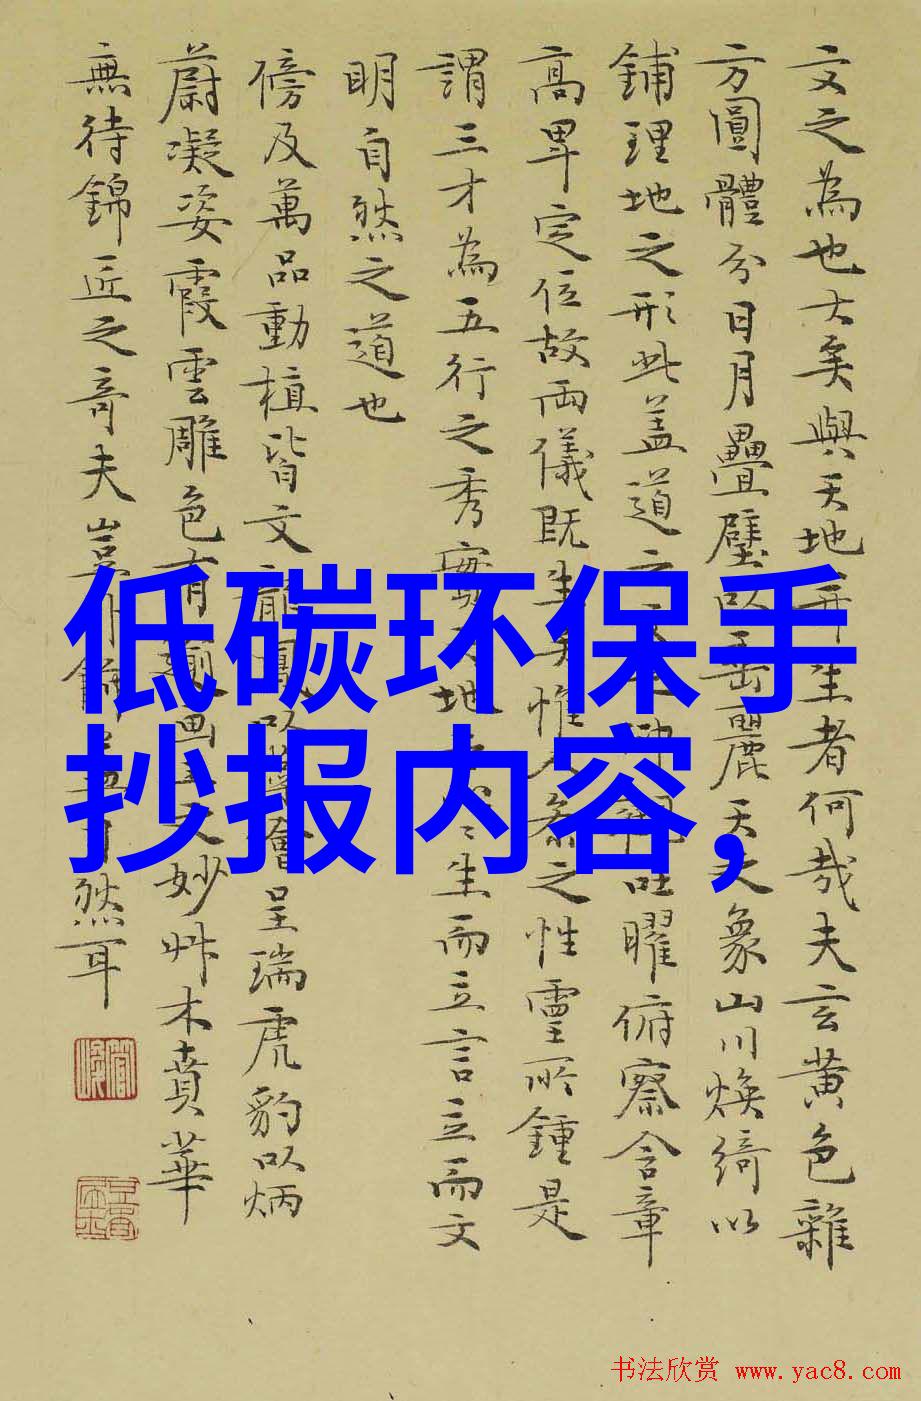 文之為也大矣與天地並生者何哉夫玄黄色雜
方圓體分日月疊璧以垂麗天之象山川煥綺以
鋪理地之形此盖道之文也仰觀吐曜俯察含章
高卑定位故兩儀既生矣惟人参之性靈所鍾是
謂三才為五行之秀實天地之心生而立言立而文
明自然之道也
傍及萬品動植皆文龍鳳以藻繪呈瑞虎豹以炳
蔚凝姿霞雲雕色有踰畫工之妙艸木賁華
無待錦匠之奇夫豈外飾盖自然耳
低碳环保手
抄报内容,
书法欣赏 www.yac8.com